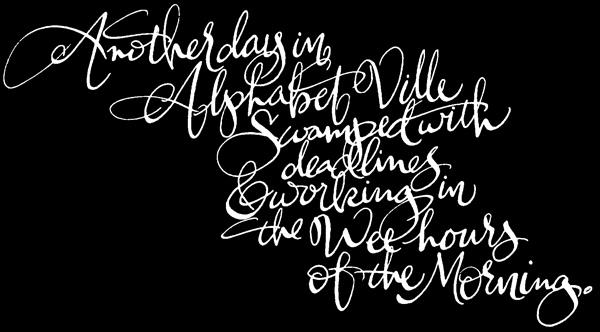 Another day in
Alphabet Ville
Swamped with
deadlines
& working in
the Wee hours
of the Morning.